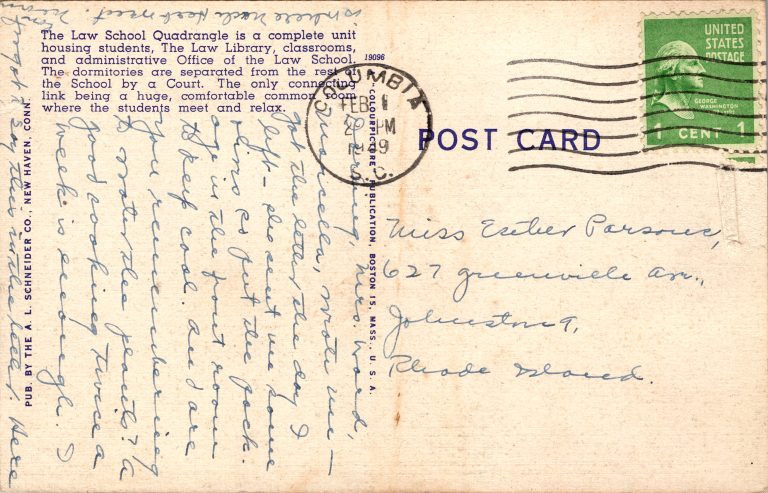 The Law School Quadrangle is a complete unit
housing students, The Law Library, classrooms,
and administrative Office of the Law School.
The dormitories are separated from the rest of
the School by a Court. The only connecting
link being a huge, comfortable common room
where the students meet and relax.
19096
PUB. BY THE A. L. SCHNEIDER CO., NEW HAVEN, CONN.
COLOURPICTURE PUBLICATION, BOSTON 15, MASS., U. S. A.
POST CARD
COLUMBIA
FEB 1
2 PM
1949
S. C.
UNITED
STATES
POSTAGE
GEORGE
WASHINGTON
1 CENT 1
Miss Esther Parsons,
627 Greenville Av.,
Johnston 9,
Rhode Island.
Mrs. Word,
wrote me -
got the letter the day I
left - she sent me some
so put the pack-
age in the front room
to keep cool. and are
you remembering
to water the plants? a
good cooking twice a
week is enough. I
forgot to say this in the letter. Here
is where